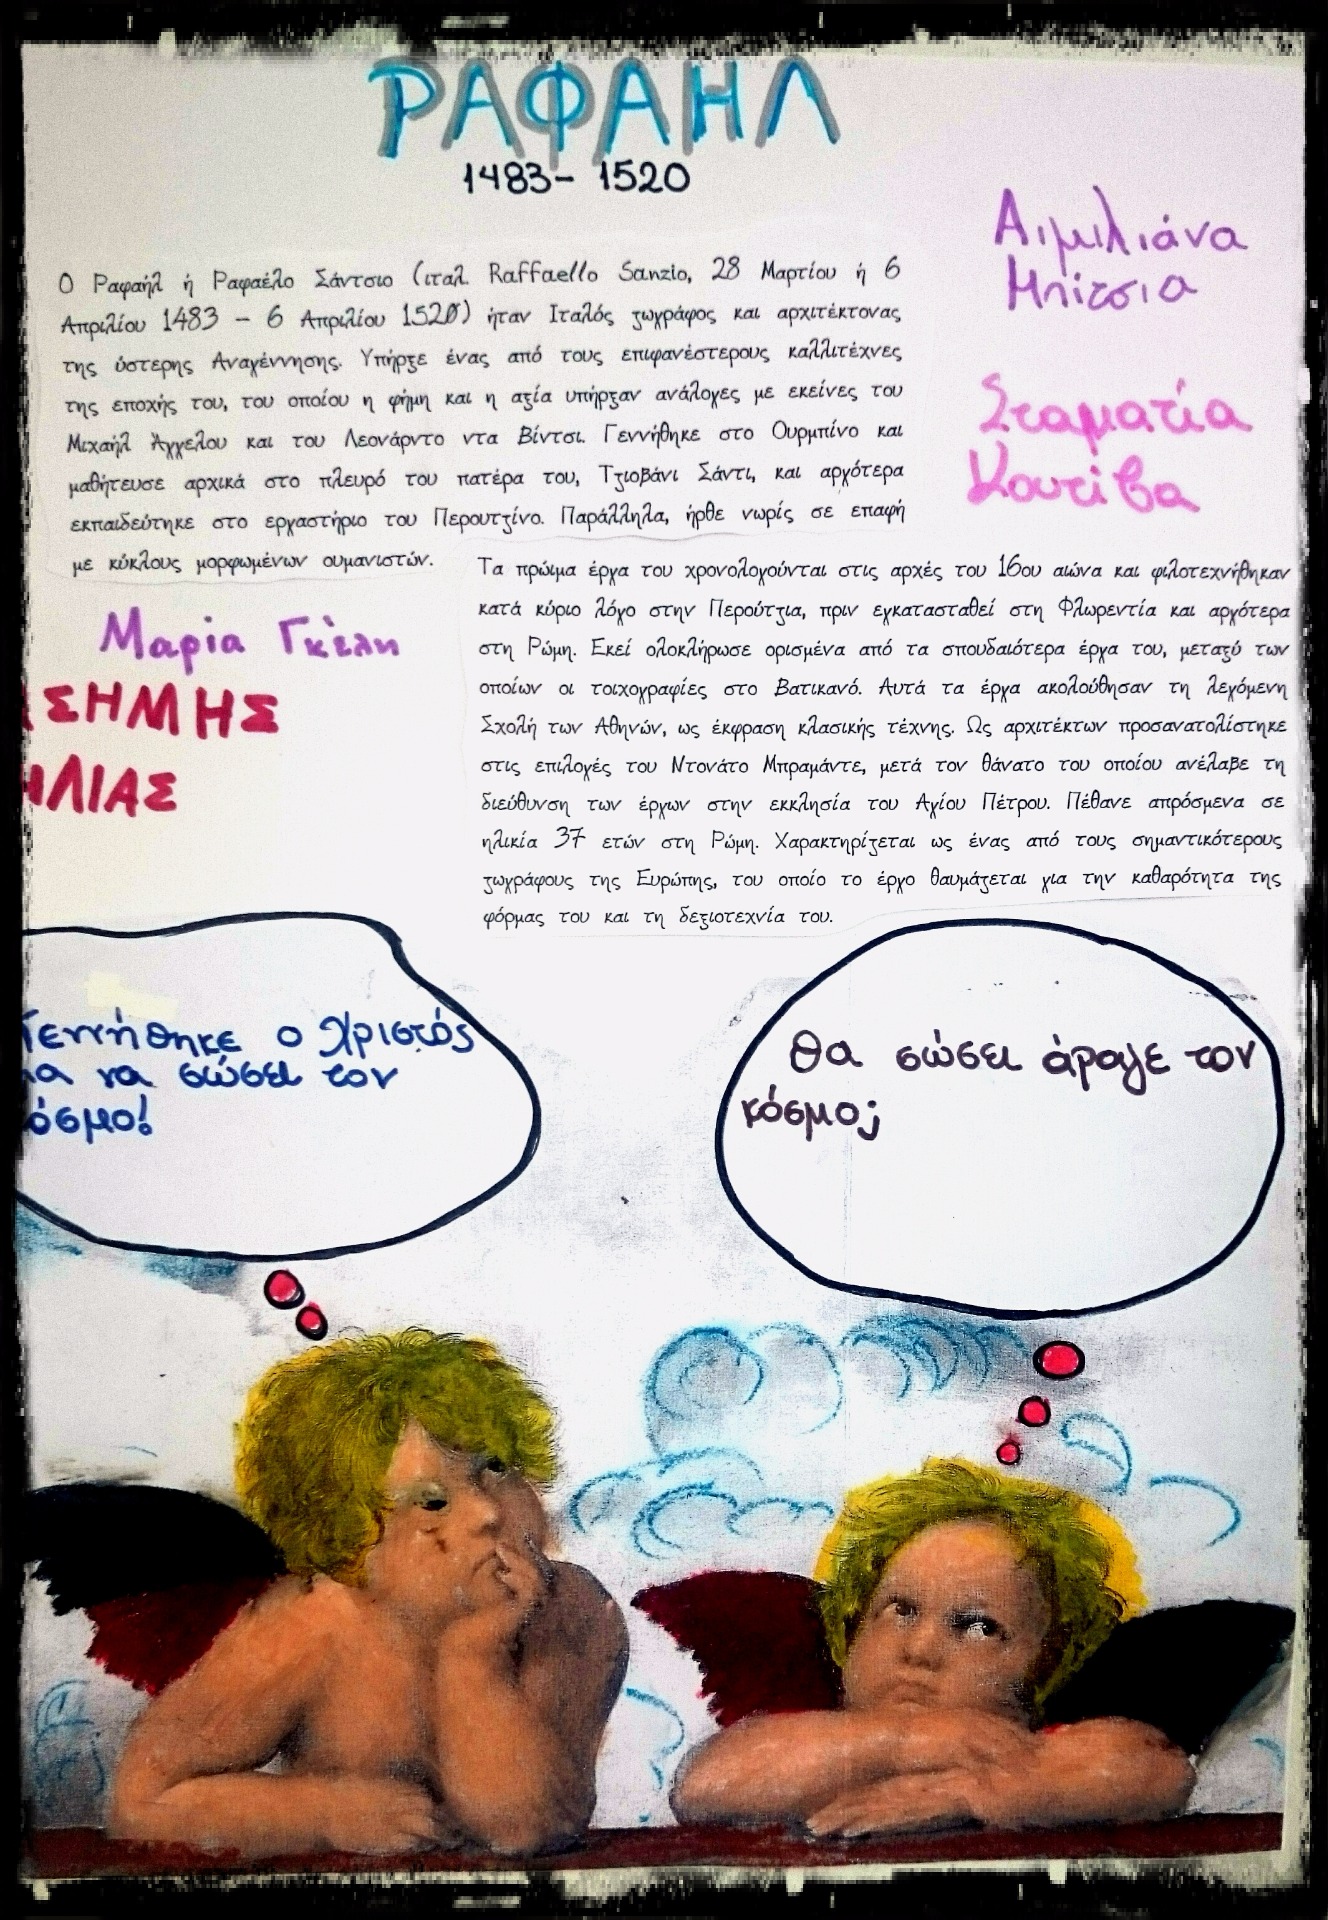 ΡΑΦΑΗΛ
1483- 1520
Αιμιλιάνα
Μπίτσια
Σταματία
Κουτίβα
Ο Ραφαήλ ή Ραφαέλο Σάντσιο (ιταλ. Raffaello Sanzio, 28 Μαρτίου ή 6
Απριλίου 1483 – 6 Απριλίου 1520) ήταν Ιταλός ζωγράφος και αρχιτέκτονας
της ύστερης Αναγέννησης. Υπήρξε ένας από τους επιφανέστερους καλλιτέχνες
της εποχής του, του οποίου η φήμη και η αξία υπήρξαν ανάλογες με εκείνες του
Μιχαήλ Άγγελου και του Λεονάρντο ντα Βίντσι. Γεννήθηκε στο Ουρμπίνο και
μαθήτευσε αρχικά στο πλευρό του πατέρα του, Τζιοβάνι Σάντι, και αργότερα
εκπαιδεύτηκε στο εργαστήριο του Περουτζίνο. Παράλληλα, ήρθε νωρίς σε επαφή
με κύκλους μορφωμένων ουμανιστών.
Τα πρώιμα έργα του χρονολογούνται στις αρχές του 16ου αιώνα και φιλοτεχνήθηκαν
κατά κύριο λόγο στην Περούτζια, πριν εγκατασταθεί στη Φλωρεντία και αργότερα
στη Ρώμη. Εκεί ολοκλήρωσε ορισμένα από τα σπουδαιότερα έργα του, μεταξύ των
οποίων οι τοιχογραφίες στο Βατικανό. Αυτά τα έργα ακολούθησαν τη λεγόμενη
Σχολή των Αθηνών, ως έκφραση κλασικής τέχνης. Ως αρχιτέκτων προσανατολίστηκε
στις επιλογές του Ντονάτο Μπραμάντε, μετά τον θάνατο του οποίου ανέλαβε τη
διεύθυνση των έργων στην εκκλησία του Αγίου Πέτρου. Πέθανε απρόσμενα σε
ηλικία 37 ετών στη Ρώμη. Χαρακτηρίζεται ως ένας από τους σημαντικότερους
ζωγράφους της Ευρώπης, του οποίο το έργο θαυμάζεται για την καθαρότητα της
φόρμας του και τη δεξιοτεχνία του.
Μαρία Γκέλη
ΑΣΗΜΗΣ
ΗΛΙΑΣ
Γεννήθηκε ο Χριστός
ια να σώσει τον
όσμο!
Θα σώσει άραγε τον
κόσμο;